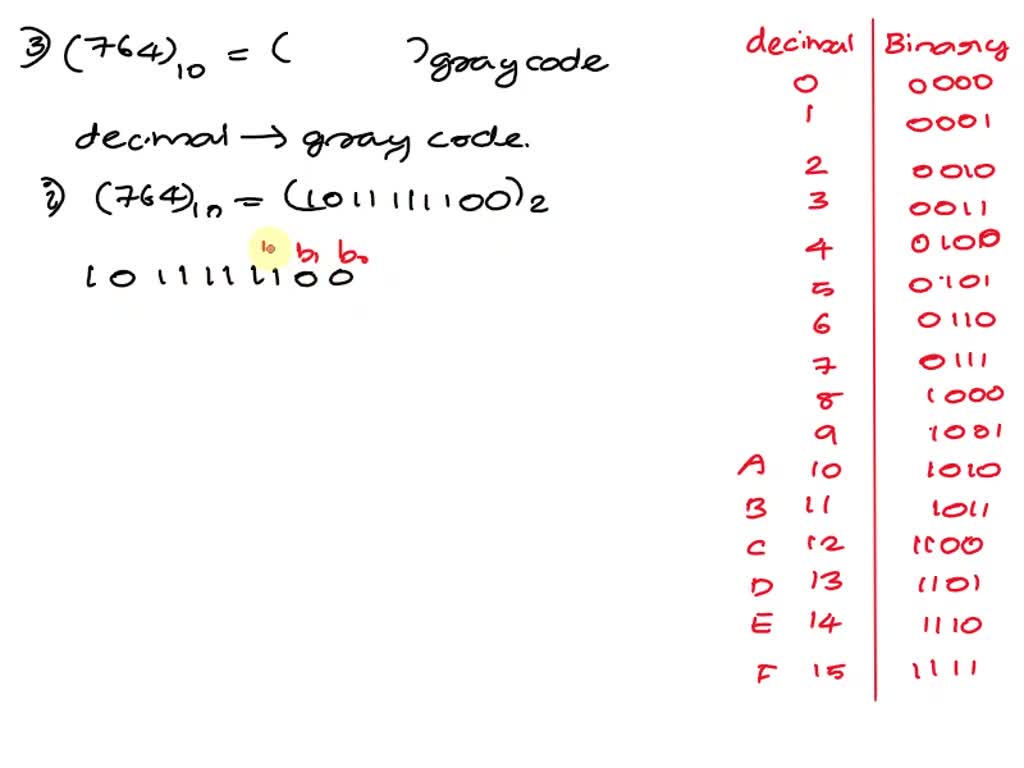 3) (764)10 = ( )gray code
decimal → gray code.
i) (764)10 = (1011111100)2
b1 b0
1 0 1 1 1 1 1 1 0 0
decimal Binary
0 0000
1 0001
2 0010
3 0011
4 0100
5 0101
6 0110
7 0111
8 1000
9 1001
A 10 1010
B 11 1011
C 12 1100
D 13 1101
E 14 1110
F 15 1111